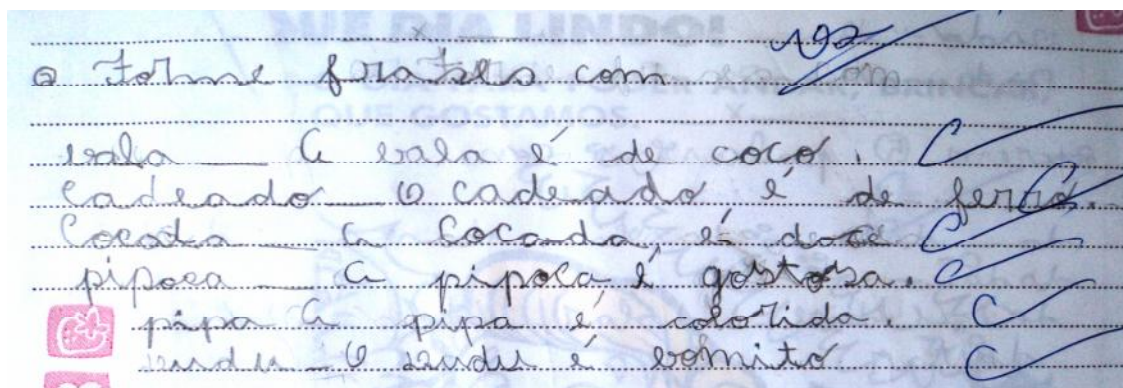 Forme com
bala — A bala é de coco.
Cadeado — O cadeado é de ferro.
Cocada — A Cocada, é doce
pipoca — A pipoca é gostosa.
pipa A pipa é colorida.
dudu — O dudu é bomito